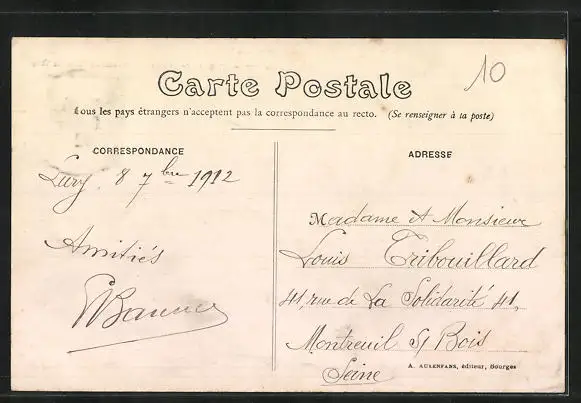 10
Carte Postale
Tous les pays étrangers n'acceptent pas la correspondance au recto. (Se renseigner à la poste)
CORRESPONDANCE
Lury, 8 7bre 1912
Amitiés
ADRESSE
Madame et Monsieur
Louis Tribouillard
41, rue de La Solidarité 41,
Montreuil S/ Bois
Seine
A. AUXENFANS, éditeur, Bourges